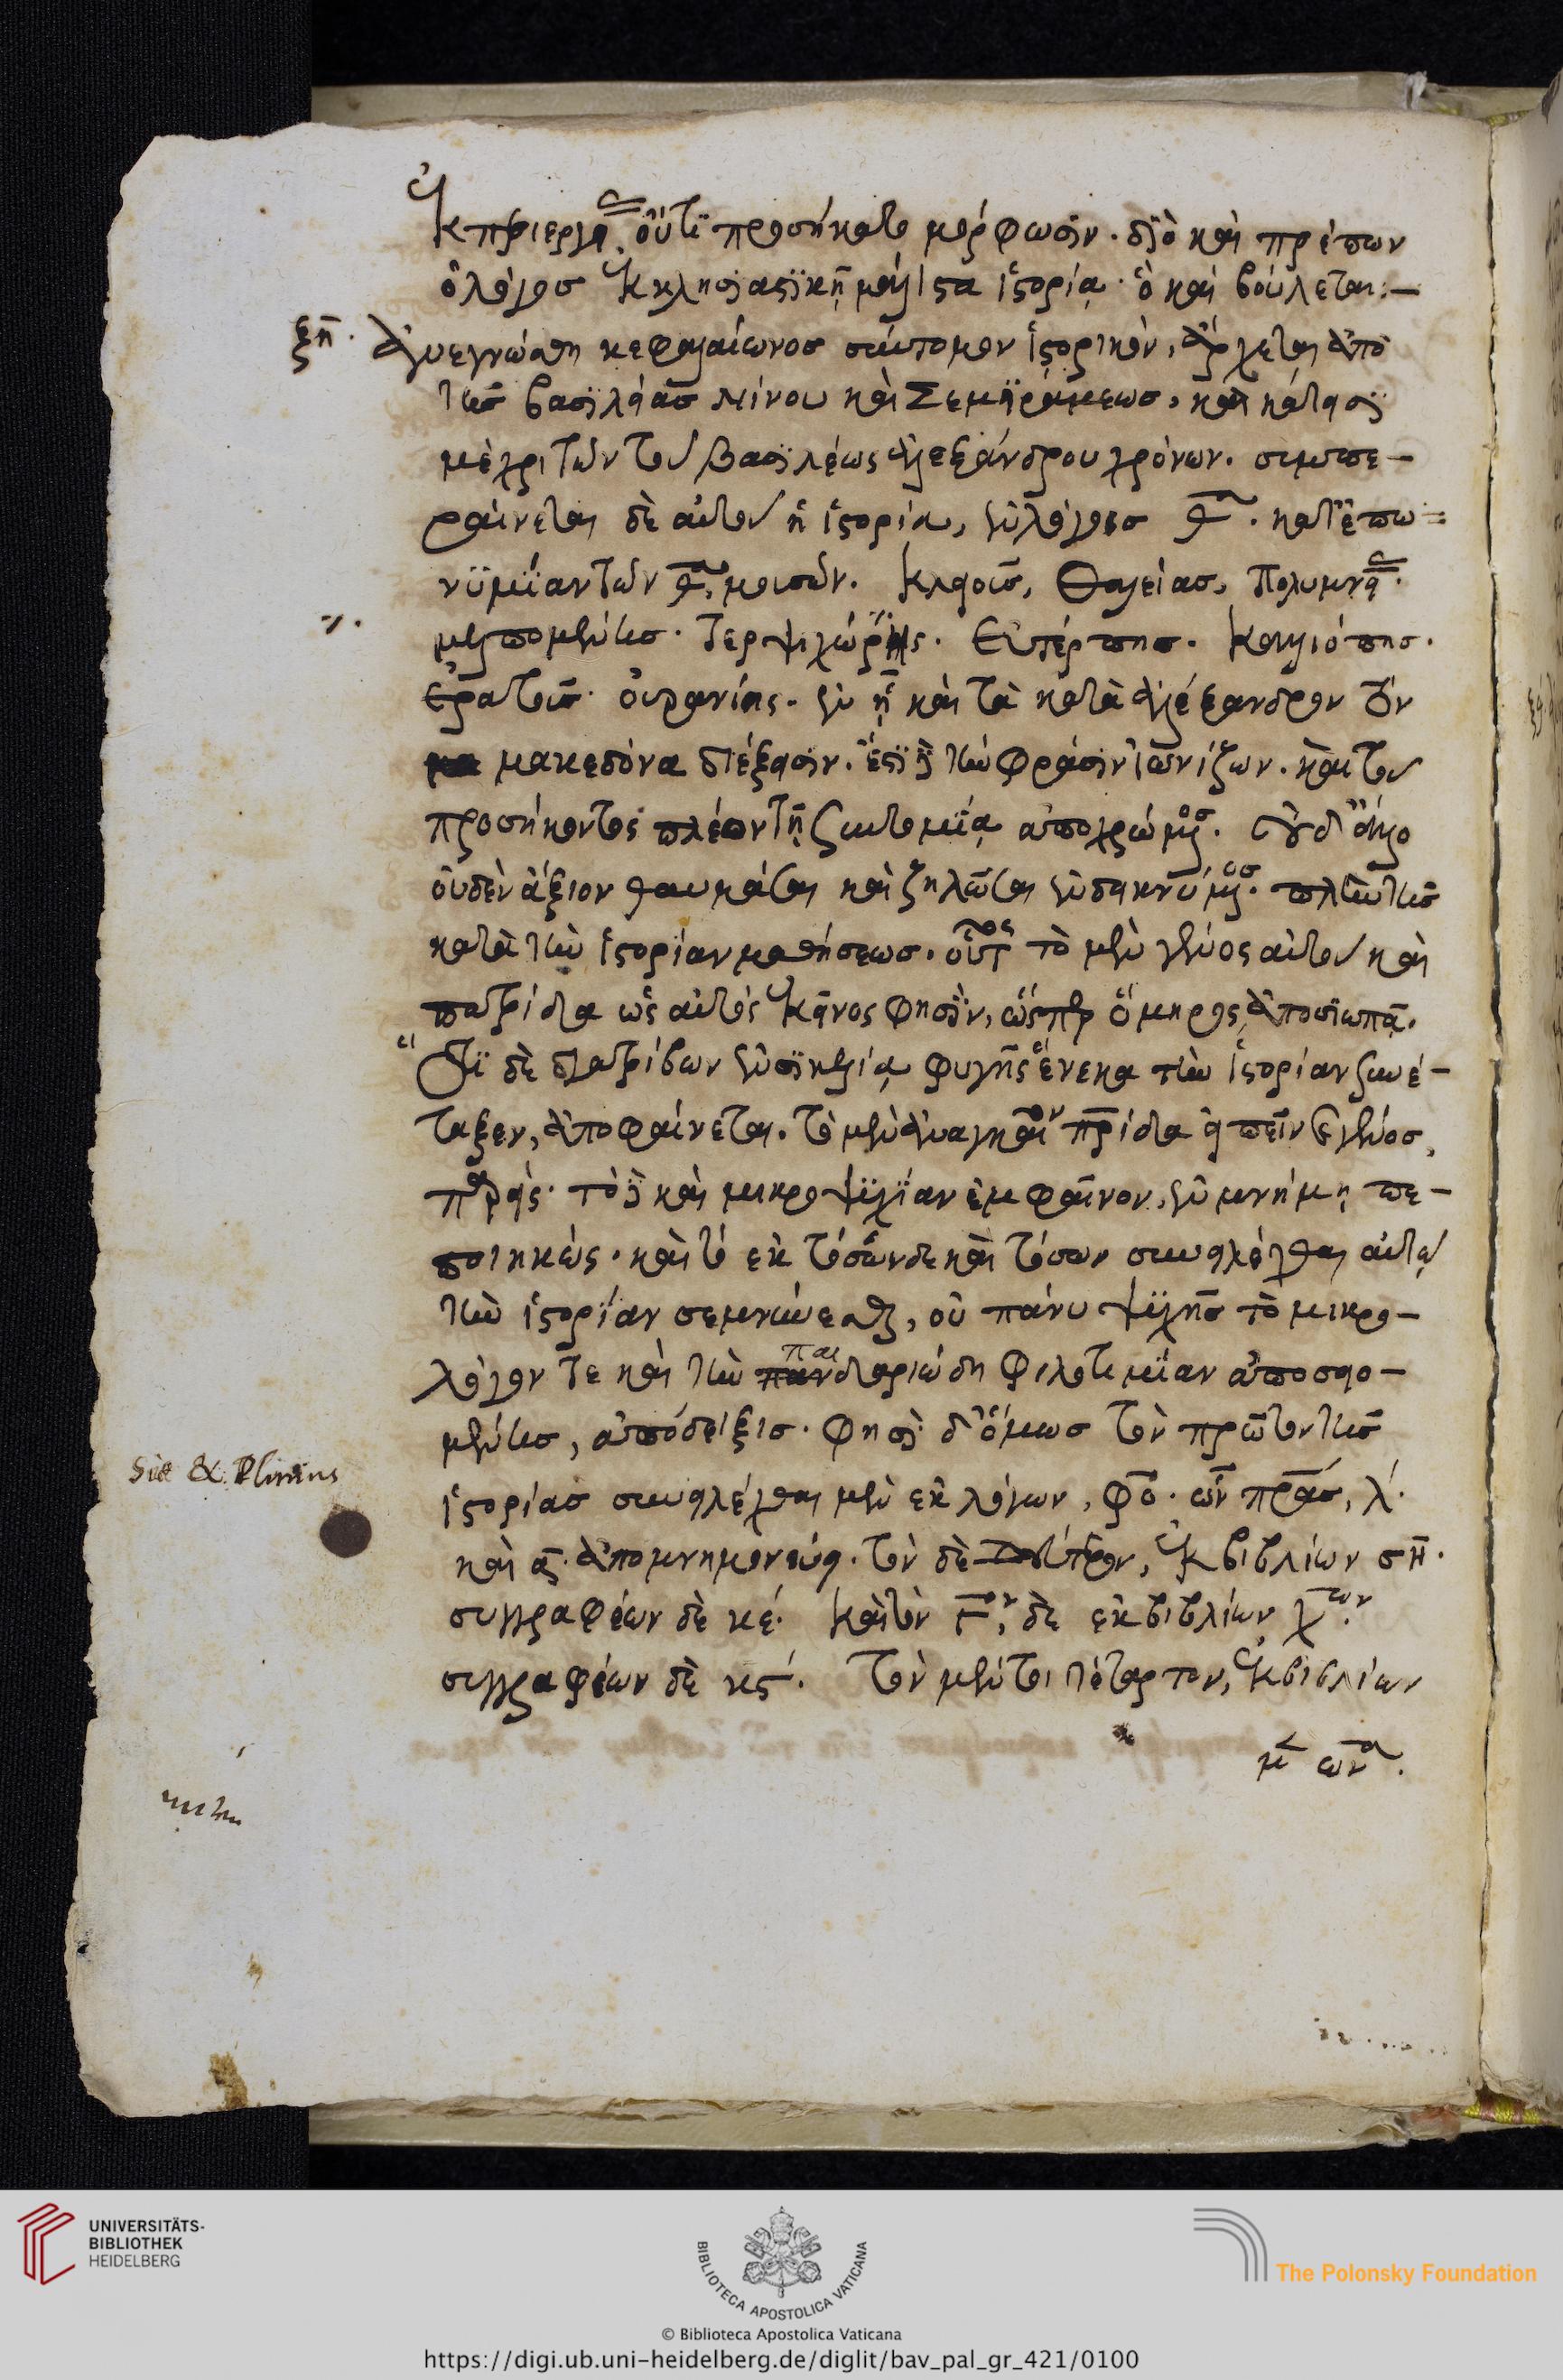 ἐκ περιεργίας οὔτι προσήκατο μόρφωσιν. διὸ καὶ πρέπων
ὁ λόγος ἐκκλησιαστικῇ μάλιστα ἱστορίᾳ· ὃ καὶ βούλεται:—
ξη. ἀνεγνώσθη κεφαλαίωνος σύντομον ἱστορικόν, ἄρχεται ἀπὸ
τῆς βασιλείας νίνου καὶ Σεμϊράμεως, καὶ κάτεισϊ
μέχρι τῶν τοῦ βασιλέως ἀλεξάνδρου χρόνων. συμπε-
ραίνεται δὲ αὐτοῦ ἡ ἱστορία, ἐν λόγοις θ. κατ' ἐπω-
νϋμίαν τῶν θ, μουσῶν. κλειοῦς, Θαλείας, Πολυμνίας.
μελπομένης. τερψιχώρης. Εὐτέρπης. καλλιόπης.
ἐρατοῦς. οὐρανίης. ἐν ᾗ καὶ τὰ κατὰ ἀλέξανδρον τὸν
μακεδόνα διέξεισιν. ἔστι δὲ τὴν φράσιν ἰωνίζων. καὶ τοῦ
προσήκοντος πλέον τῇ συντομίᾳ ἀποχρώμενος. οὐδ' ἄλλο
οὐδὲν ἄξιον θαυμάσαι καὶ ζηλῶσαι ἐνδεικνύμενος. πλὴν τῆς
κατὰ τὴν ἱστορίαν μαθήσεως. οὗτος τὸ μὲν γένος αὐτοῦ καὶ
πατρίδα ὡς αὐτὸς ἐκεῖνος φησὶν, ὥσπερ ὅμηρος ἀποσιωπᾷ.
Ὅτι δὲ διατρίβων ἐν σικελίᾳ φυγῆς ἕνεκα τὴν ἱστορίαν συνέ-
ταξεν, ἀποφαίνεται. τὸ μὲν ἀναγκαῖον πρίδα εἰπεῖν καὶ γένος,
παρείς. τὸ δὲ καὶ μικροψϋχίαν ἐμφαῖνον, ἐν μνήμῃ πε-
ποιηκώς. καὶ τὸ ἐκ τόσωνδε καὶ τόσων συνειλέχθαι αὐτῷ
τὴν ἱστορίαν σεμνύνεσθαι, οὐ πάνυ ψϋχῆς τὸ μικρο-
λόγον τε καὶ τὴν παιδαριώδη φιλοτιμίαν ἀποσειο-
μένης, ἀπόδειξις. φησὶ δ' ὅμως τὸν πρῶτον τῆς
Sic & Plinius
ἱστορίας συνειλέχθαι μὲν ἐκ λόγων, φο. ὧν πρας, λ.
καὶ α. ἀπομνημονεύει. τὸν δὲ δεύτερον, ἐκ βιβλίων ση.
συγγραφέων δὲ κέ. καὶ τὸν γον, δὲ ἐκ βιβλίων χων.
συγγραφέων δὲ κϛ. τὸν μέντοι τέταρτον, ἐκ βιβλίων
UNIVERSITÄTS-
BIBLIOTHEK
HEIDELBERG
BIBLIOTECA APOSTOLICA VATICANA
The Polonsky Foundation
© Biblioteca Apostolica Vaticana
https://digi.ub.uni-heidelberg.de/diglit/bav_pal_gr_421/0100